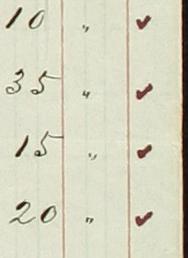 10 " ✓
35 " ✓
15 " ✓
20 " ✓